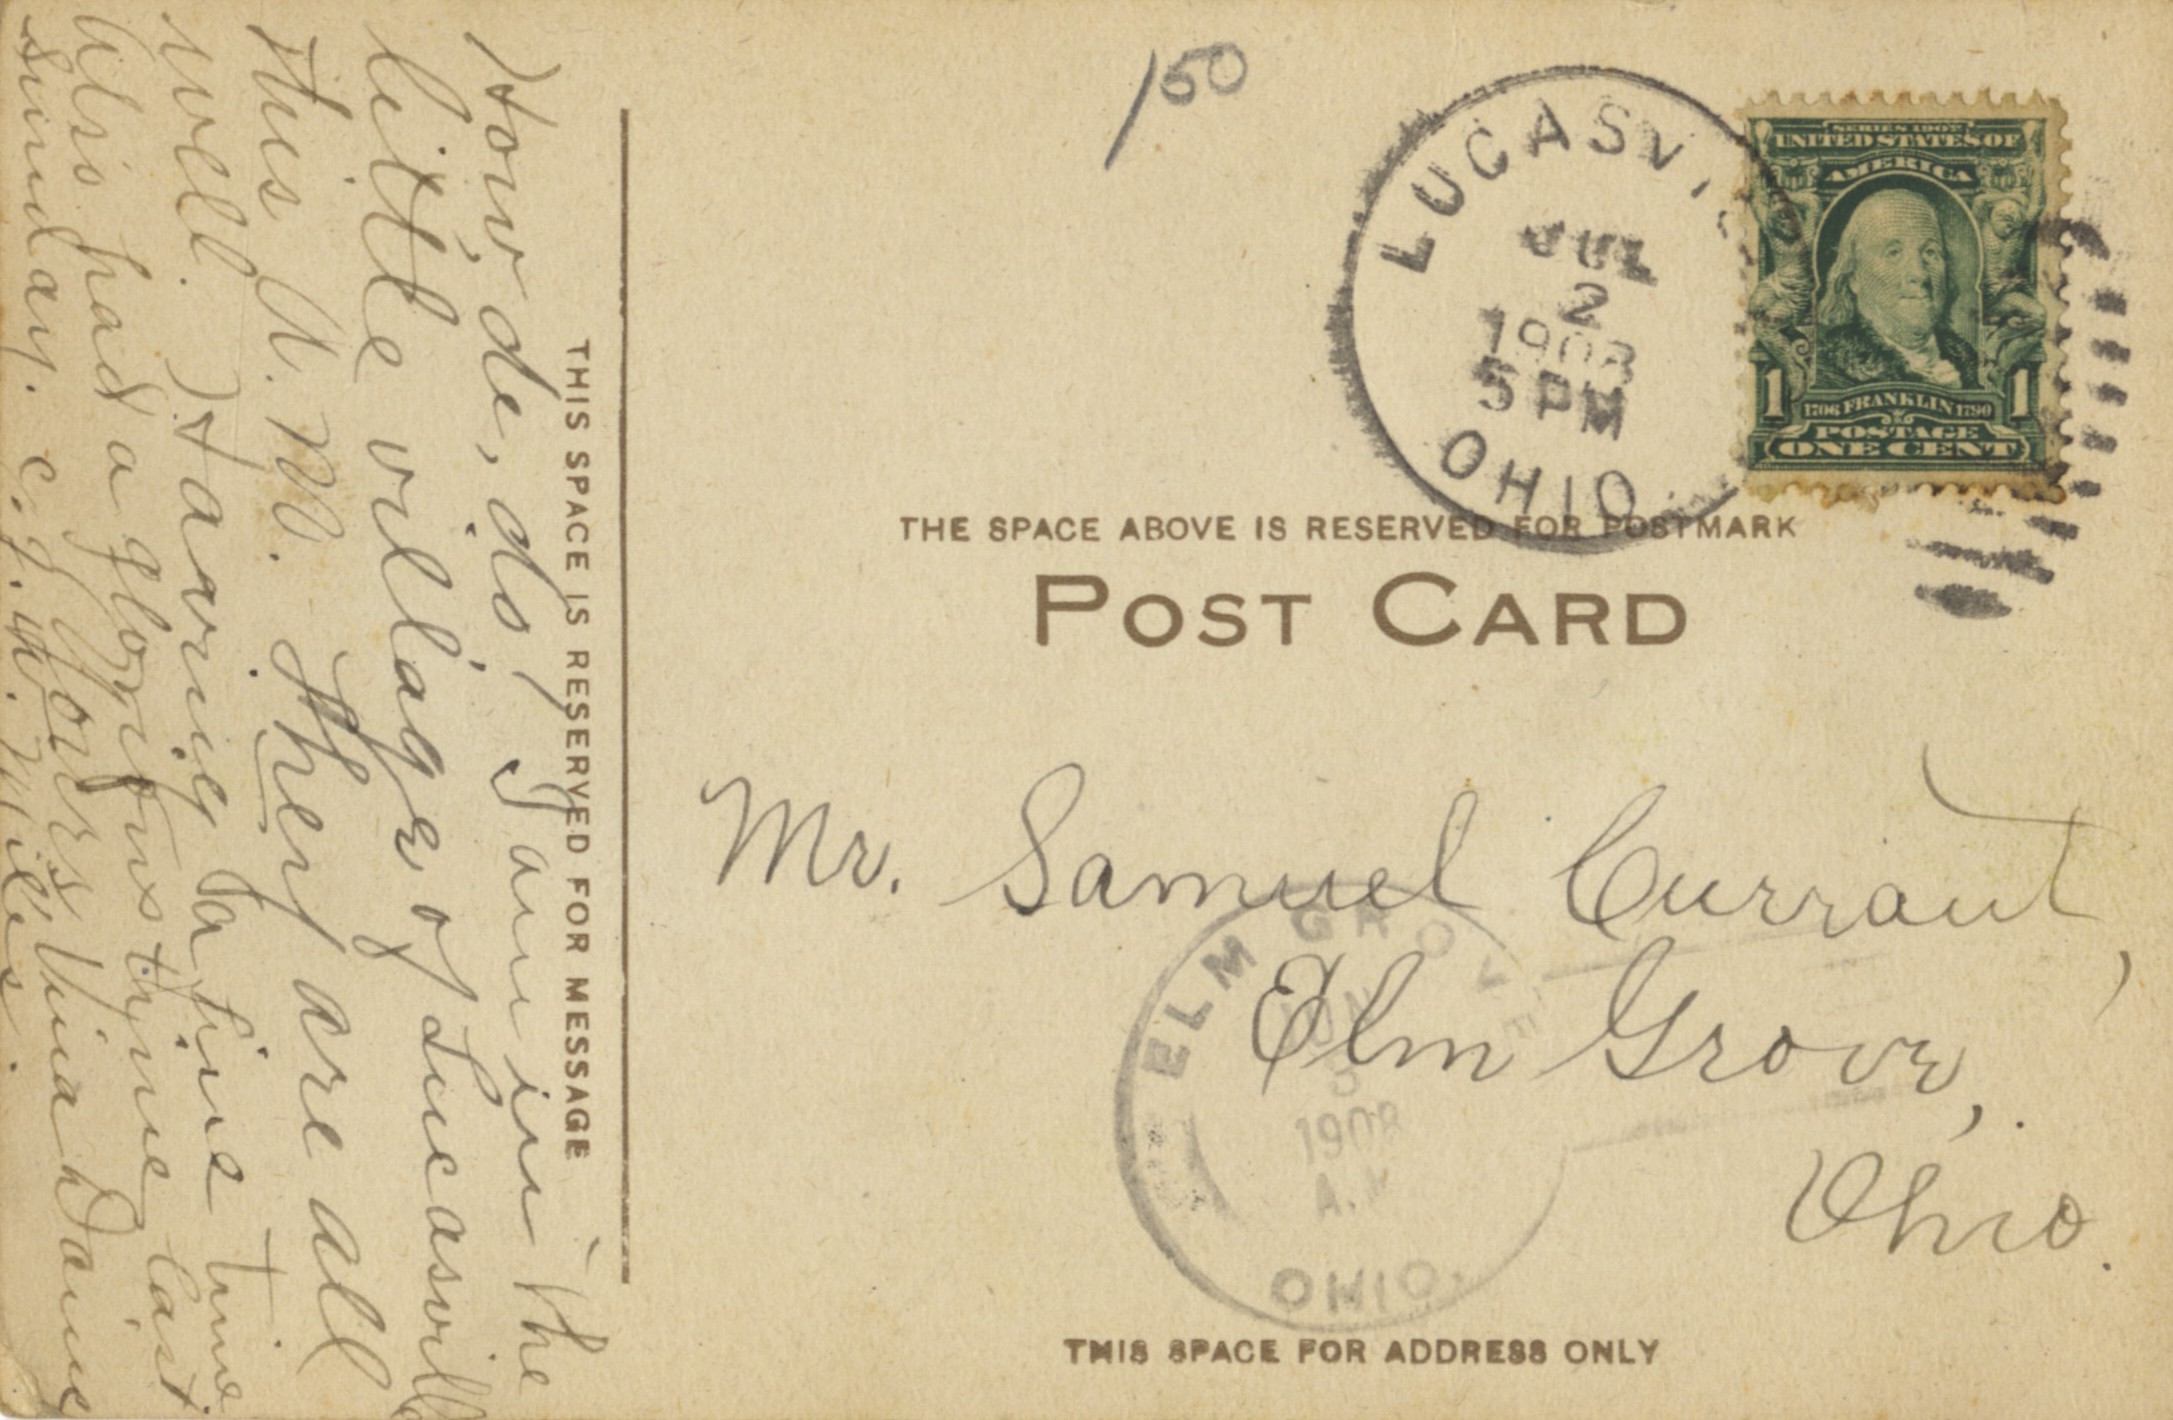 How de, do, I am in the
little village of Lucasville
this A. M. They are all
well. Having a fine time
Also had a glorious tyme last
Sunday. Yours Vina
c. J. W. Miles.
THIS SPACE IS RESERVED FOR MESSAGE
150
LUCASVI
JUL
2
1908
5 PM
OHIO
SERIES 1902
UNITED STATES OF
AMERICA
1 1
1706 FRANKLIN 1790
POSTAGE
ONE CENT
THE SPACE ABOVE IS RESERVED FOR POSTMARK
POST CARD
Mr. Samuel Currant,
Elm Grove,
Ohio.
ELM GROVE
3
1908
A.M
OHIO.
THIS SPACE FOR ADDRESS ONLY